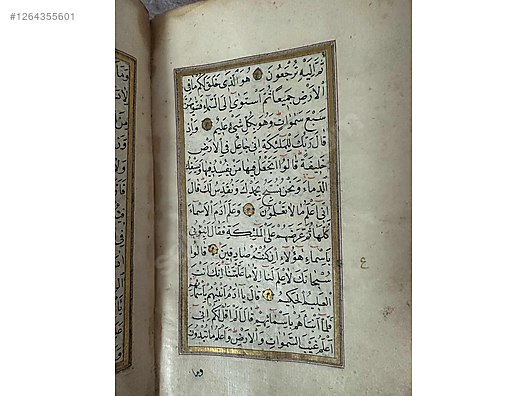 #1264355601
ثُمَّ إِلَيْهِ تُرْجَعُونَ هُوَ الَّذِي خَلَقَ لَكُمْ مَا فِي
الْأَرْضِ جَمِيعًا ثُمَّ اسْتَوَى إِلَى السَّمَاءِ فَسَوّٰيهُنَّ
سَبْعَ سَمٰوَاتٍ وَهُوَ بِكُلِّ شَيْءٍ عَلِيمٌ وَإِذْ
قَالَ رَبُّكَ لِلْمَلٰئِكَةِ إِنِّي جَاعِلٌ فِي الْأَرْضِ
خَلِيفَةً قَالُوا أَتَجْعَلُ فِيهَا مَنْ يُفْسِدُ فِيهَا وَيَسْفِكُ
الدِّمَاءَ وَنَحْنُ نُسَبِّحُ بِحَمْدِكَ وَنُقَدِّسُ لَكَ قَالَ
إِنِّي أَعْلَمُ مَا لَا تَعْلَمُونَ وَعَلَّمَ آدَمَ الْأَسْمَاءَ
كُلَّهَا ثُمَّ عَرَضَهُمْ عَلَى الْمَلٰئِكَةِ فَقَالَ أَنْبِئُونِي
بِأَسْمَاءِ هٰؤُلَاءِ إِنْ كُنْتُمْ صَادِقِينَ قَالُوا
سُبْحَانَكَ لَا عِلْمَ لَنَا إِلَّا مَا عَلَّمْتَنَا إِنَّكَ أَنْتَ
الْعَلِيمُ الْحَكِيمُ قَالَ يَا آدَمُ أَنْبِئْهُمْ بِأَسْمَائِهِمْ
فَلَمَّا أَنْبَأَهُمْ بِأَسْمَائِهِمْ قَالَ أَلَمْ أَقُلْ لَكُمْ إِنِّي
أَعْلَمُ غَيْبَ السَّمٰوَاتِ وَالْأَرْضِ وَأَعْلَمُ مَا تُبْدُونَ
ع
وما